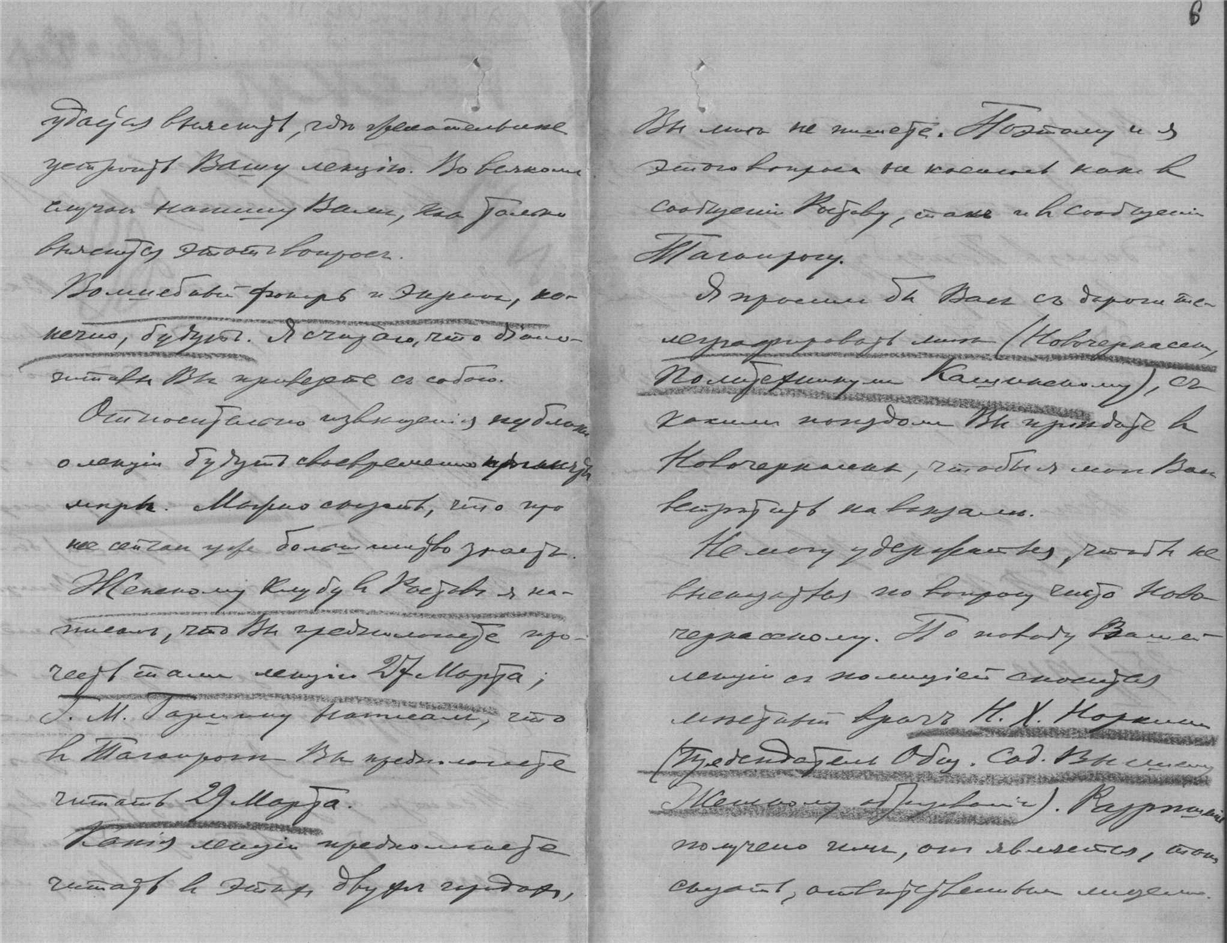 6
удастся выяснить, гдѣ желательнѣе
устроить Вашу лекцію. Во всякомъ
случаѣ напишу Вамъ, какъ только
выяснится этотъ вопросъ.
Волшебный фонарь и экранъ, ко-
нечно, будутъ. Я считаю, что діапо-
зитивы Вы привезете съ собою.
Относительно извѣщенія публики
о лекціи будутъ своевременно приняты
мѣры. Можно сказать, что про
нее сейчасъ уже большинство знаетъ.
Женскому Клубу въ Ростовѣ я на-
писалъ, что Вы предполагаете про-
честь тамъ лекцію 27 Марта;
написалъ, что
въ Таганрогѣ Вы предполагаете
читать 29 Марта.
Какія лекціи предполагаете
читать въ этихъ двухъ городахъ,
Вы мнѣ не пишете. Поэтому и я
этого вопроса не касался какъ въ
сообщеніи Ростову, такъ и въ сообщеніи
Таганрогу.
Я просилъ бы Васъ съ дороги те-
леграфировать мнѣ (Новочеркасскъ,
Политехникумъ Кашинскому), съ
какимъ поѣздомъ Вы пріѣдете въ
Новочеркасскъ, чтобы я могъ Васъ
встрѣтить на вокзалѣ.
Не могу удержаться, чтобы не
высказаться по вопросу чисто Ново-
черкасскому. По поводу Вашей
лекціи съ полиціей сносится
мѣстный врачъ Н. Х.
(Предсѣдатель Общ. Сод. Высшему
Женскому образованію). Разрѣшеніе
получено имъ, онъ является, такъ
сказать, отвѣтственнымъ лицомъ.